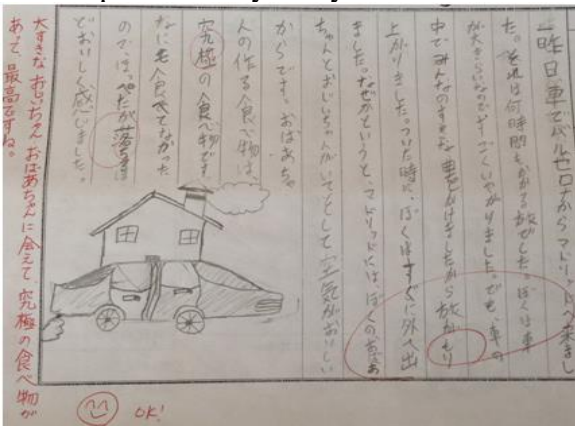 一昨日、車でバルセロナからマドリッドへ来まし
た。それは何時間もかかる旅でした。ぼくは車
が大きらいなのですごくいやがりました。でも、車の
中でみんなのすきな
上がりました。ついた時に、ぼくはすぐに外へ出
ました。なぜかというと、マドリッドには、ぼくのおばあ
ちゃんとおじいちゃんがいて
空気がおいしい
からです。おばあちゃ
んの作る食べ物は、
究極の食べ物です
なにも食べてなかった
ので、ほっぺたが落ちるほ
どおいしく感じました。
大すきなおじいちゃん、おばあちゃんに会えて、究極の食べ物が
あって、最高ですね。
OK!